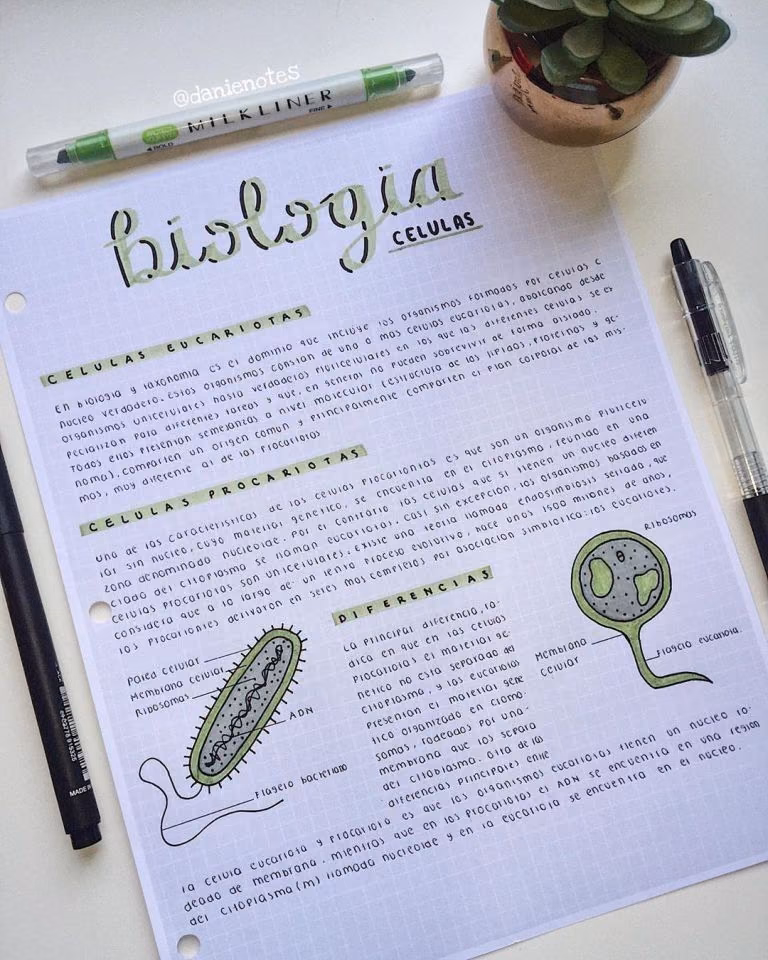 @danienotes
MILKLINER
BOLD
FINE
biologia
CELULAS
CELULAS EUCARIOTAS
En biologia y taxonomia es el dominio que incluye los organismos formados por celulas c
nucleo verdadero. Estos organismos constan de una o mas celulas eucariotas, abarcando desde
organismos unicelulares hasta verdaderos pluricelulares en los que las diferentes celulas se es
pecializan para diferentes tareas y que, en general no pueden sobrevivir de forma aislada.
Todos ellos presentan semejanzas a nivel molecular (estructura de los lipidos, proteinas y ge-
noma), comparten un origen comun y principalmente comparten el plan corporal de los mis-
mos, muy diferente al de las procariotas
CELULAS PROCARIOTAS
una de las caracteristicas de las celulas procariontas es que son un organismo pluricelu
lar sin nucleo, cuyo material genetico, se encuentra en el citoplasma, reunido en una
zona denominado nucleoide. Por el contrario las celulas que si tienen un nucleo diferen
ciado del citoplasma se llaman eucariotas. Casi sin excepción, los organismos basados en
celulas procariotas son unicelulares. Existe una teoria llamada endosimbiosis seriada, que
considera que a lo largo de un lento proceso evolutivo, hace unos 1500 millones de años,
los procariontes derivaron en seres mas complejos por asociacion simbiotica: los eucariotes.
DIFERENCIAS
La principal diferencia, ra-
dica en que en las celulas
procariotas el material ge-
netico no esta separado del
citoplasma, y las eucariotas
presentan el material gene
tico organizado en cromo-
somas, rodeados por una
membrana que los separa
del citoplasma. Otra de las
diferencias principales entre
la celula eucariota y procariota es que los organismos eucariotas tienen un nucleo ro-
deado de membrana, mientras que en las procariotas el ADN se encuentra en una region
del citoplasma (m) llamada nucleoide y en la eucariota se encuentra en el nucleo.
Pared celular
Membrana celular
Ribosomas
ADN
Flagelo bacteriano
Ribosomas
Membrana
celular
Flagelo eucariota.
MADE IN